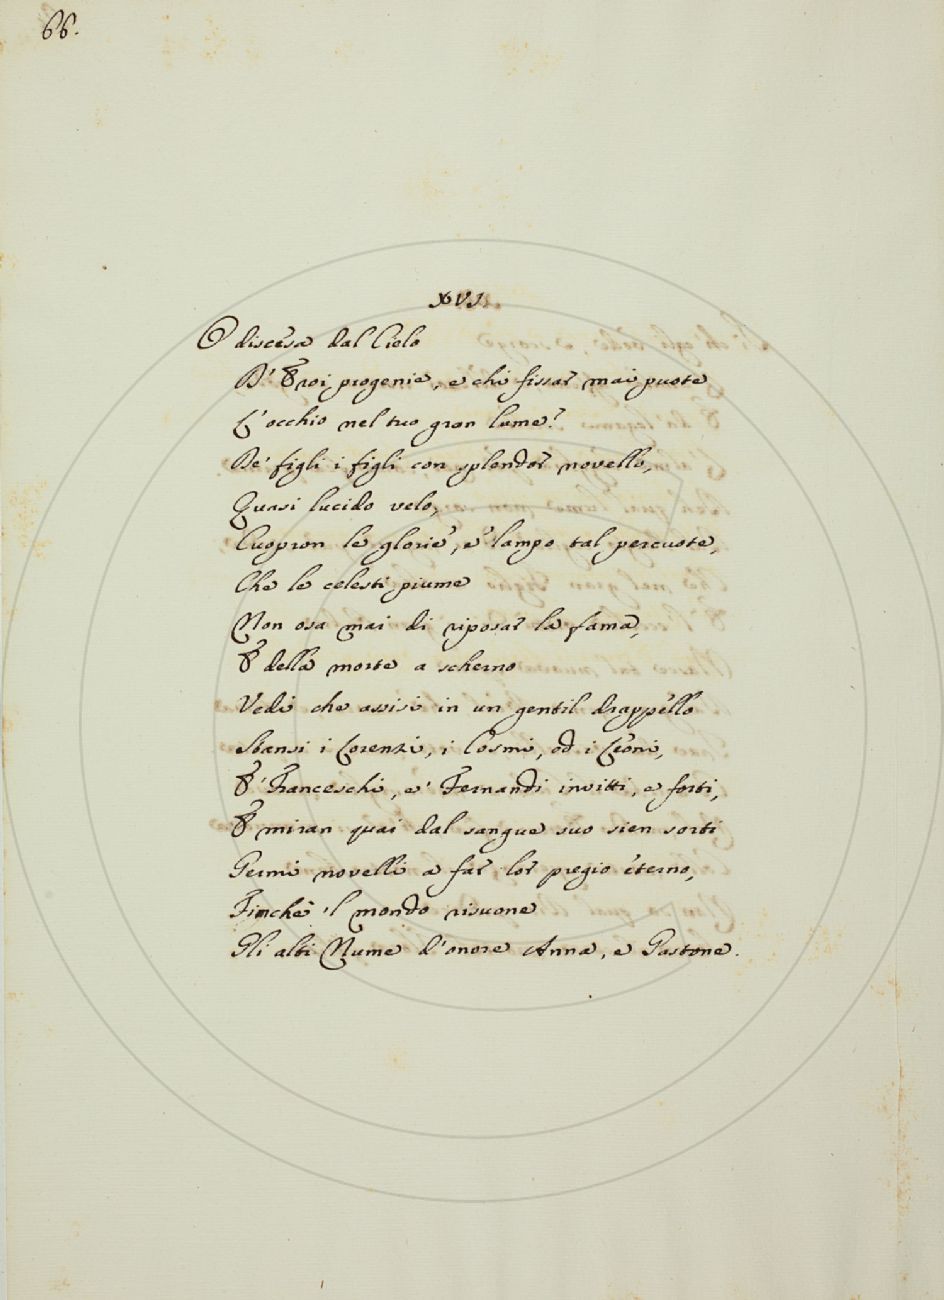 66.
XVI.
O discesa dal Cielo
D' Eroi progenie, e chi fissar mai puote
L'occhio nel tuo gran lume?
De' figli i figli con splendor novello,
Quasi lucido velo,
Cuopron le glorie, e lampo tal percuote,
Che le celesti piume
Non osa mai di riposar la fama,
E della morte a scherno
Vedi che assisi in un gentil drappello
Stansi i Lorenzi, i Cosmi, od i Leoni,
E' Franceschi, e' Fernandi invitti, e forti,
E miran quai dal sangue suo sien sorti
Germi novelli a far lor pregio eterno,
Finchè 'l mondo risuone
Gli alti Nume d'onore Anna, e Gastone.